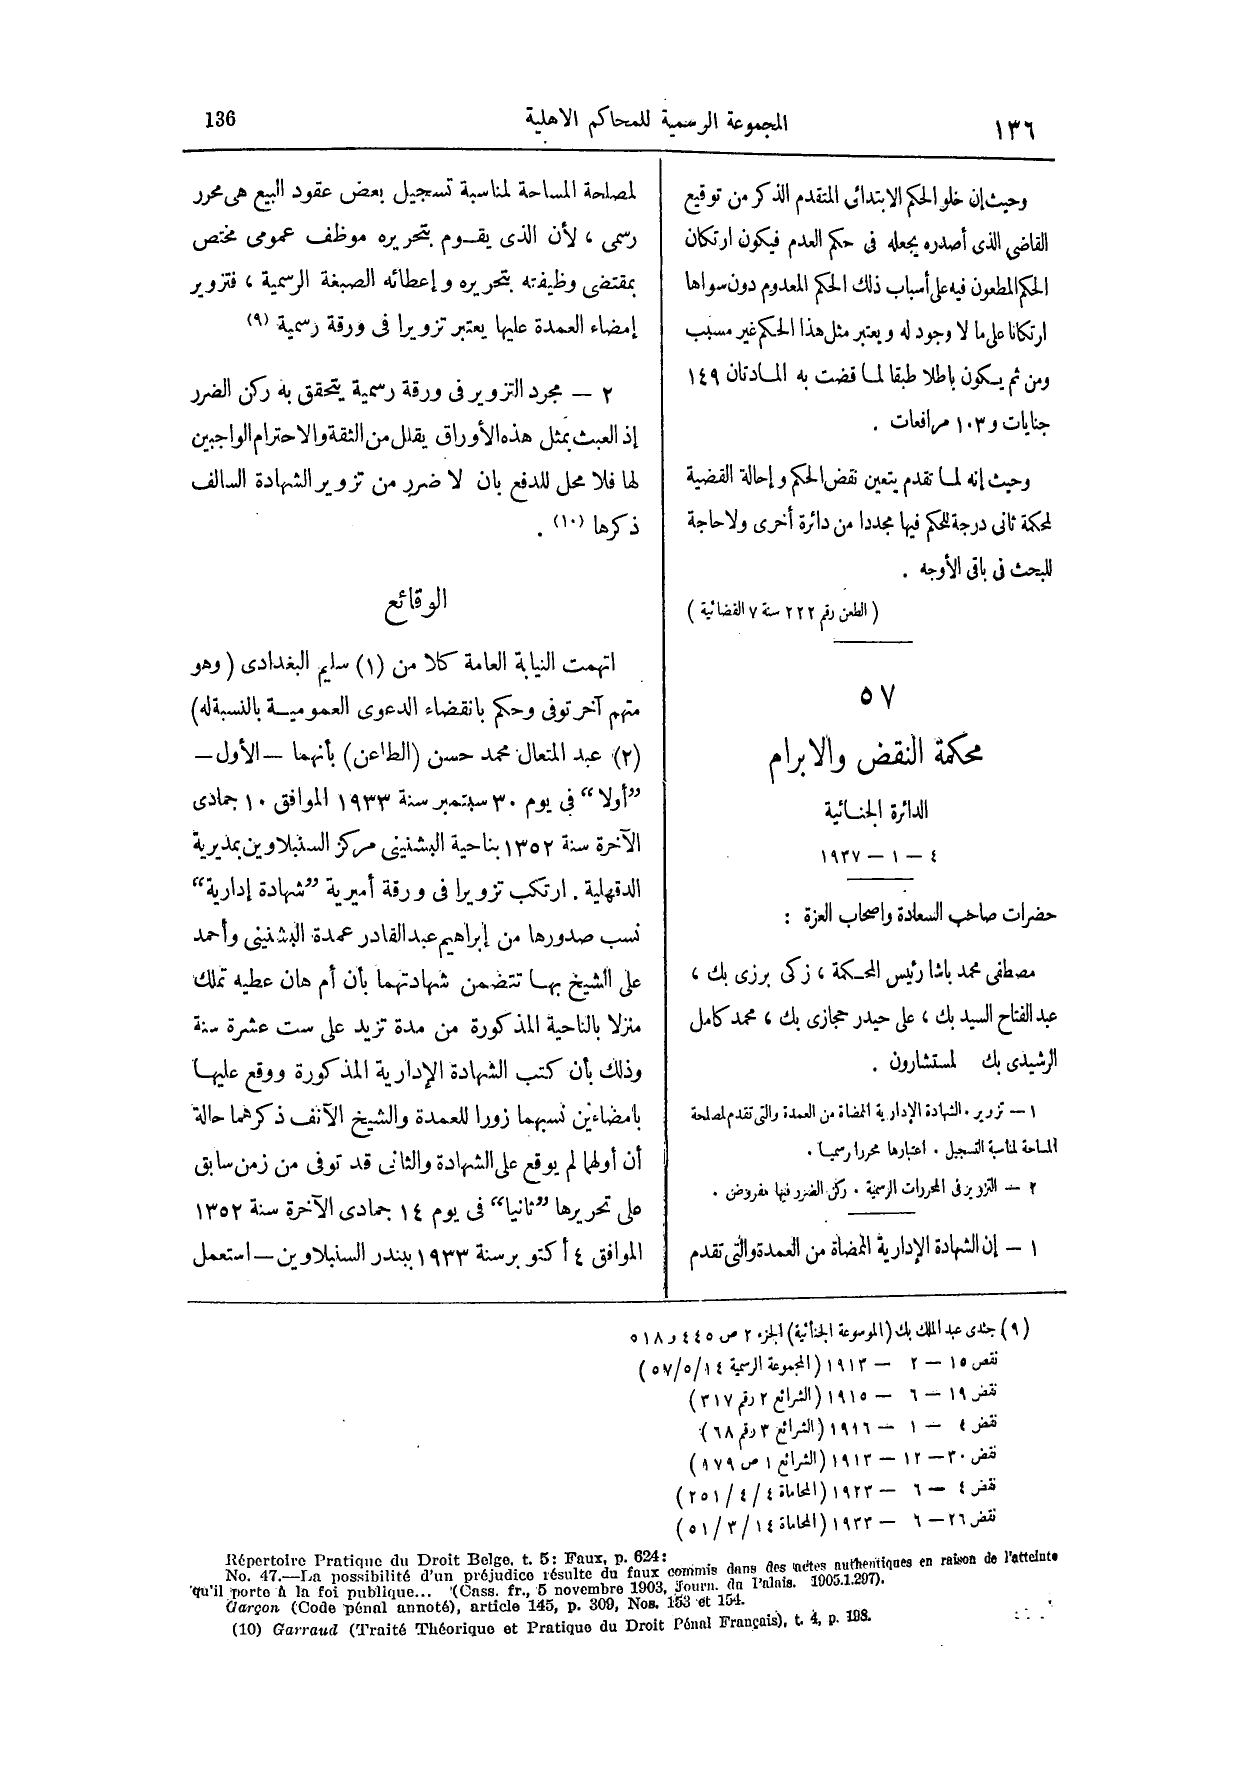 ١٣٦
المجموعة الرسمية للمحاكم الاهلية
136
وحيث إن خلو الحكم الابتدائى المتقدم الذكر من توقيع
القاضى الذى أصدره يجعله فى حكم العدم فيكون ارتكان
الحكم المطعون فيه على أسباب ذلك الحكم المعدوم دون سواها
ارتكانا على ما لا وجود له ويعتبر مثل هذا الحكم غير مسبب
ومن ثم يكون باطلا طبقا لما قضت به المادتان ١٤٩
جنايات و ١٠٣ مرافعات .
وحيث إنه لما تقدم يتعين نقض الحكم وإحالة القضية
لمحكمة ثانى درجة للحكم فيها مجددا من دائرة أخرى ولا حاجة
للبحث فى باقى الأوجه .
( الطعن رقم ٢٢٢ سنة ٧ القضائية )
٥٧
محكمة النقض والابرام
الدائرة الجنائية
٤ — ١ — ١٩٣٧
حضرات صاحب السعادة واصحاب العزة :
مصطفى محمد باشا رئيس المحكمة ، زكى برزى بك ،
عبد الفتاح السيد بك ، على حيدر حجازى بك ، محمد كامل
الرشيدى بك لمستشارون .
١ — تزوير . الشهادة الإدارية الممضاة من العمدة والتى تقدم لمصلحة
المساحة لمناسبة التسجيل . اعتبارها محررا رسميا .
٢ — التزوير فى المحررات الرسمية . ركن الضرر فيها مفروض .
١ — إن الشهادة الإدارية الممضاة من العمدة والتى تقدم
لمصلحة المساحة لمناسبة تسجيل بعض عقود البيع هى محرر
رسمى ، لأن الذى يقوم بتحريره موظف عمومى مختص
بمقتضى وظيفته بتحريره وإعطائه الصبغة الرسمية ، فتزوير
إمضاء العمدة عليها يعتبر تزويرا فى ورقة رسمية (٩)
٢ — مجرد التزوير فى ورقة رسمية يتحقق به ركن الضرر
إذ العبث بمثل هذه الأوراق يقلل من الثقة والاحترام الواجبين
لها فلا محل للدفع بان لا ضرر من تزوير الشهادة السالف
ذكرها (١٠) .
الوقائع
اتهمت النيابة العامة كلا من (١) سليم البغدادى (وهو
متهم آخر توفى وحكم بانقضاء الدعوى العمومية بالنسبة له)
(٢) عبد المتعال محمد حسن (الطاعن) بأنهما — الأول —
”أولا“ فى يوم ٣٠ سبتمبر سنة ١٩٣٣ الموافق ١٠ جمادى
الآخرة سنة ١٣٥٢ بناحية البشنينى مركز السنبلاوين بمديرية
الدقهلية . ارتكب تزويرا فى ورقة أميرية ”شهادة إدارية“
نسب صدورها من إبراهيم عبد القادر عمدة البشنينى وأحمد
على الشيخ بها تتضمن شهادتهما بأن أم هان عطيه تملك
منزلا بالناحية المذكورة من مدة تزيد على ست عشرة سنة
وذلك بأن كتب الشهادة الإدارية المذكورة ووقع عليها
بامضاءين نسبهما زورا للعمدة والشيخ الآنف ذكرهما حالة
أن أولهما لم يوقع على الشهادة والثانى قد توفى من زمن سابق
على تحريرها ”ثانيا“ فى يوم ١٤ جمادى الآخرة سنة ١٣٥٢
الموافق ٤ أكتوبر سنة ١٩٣٣ ببندر السنبلاوين — استعمل
(٩) جندى عبد الملك بك (الموسوعة الجنائية) الجزء ٢ ص ٤٤٥ و ٥١٨
نقض ١٥ — ٢ — ١٩١٣ (المجموعة الرسمية ١٤/٥/٥٧)
نقض ١٩ — ٦ — ١٩١٥ (الشرائع ٢ رقم ٣١٧)
نقض ٤ — ١ — ١٩١٦ (الشرائع ٣ رقم ٦٨)
نقض ٣٠ — ١٢ — ١٩١٣ (الشرائع ١ ص ٩٧٩)
نقض ٤ — ٦ — ١٩٢٣ (المحاماة ٤/٤/٢٥١)
نقض ٢٦ — ٦ — ١٩٣٣ (المحاماة ١٤/٣/٥١)
Répertoire Pratique du Droit Belge, t. 5: Faux, p. 624:
No. 47.—La possibilité d'un préjudice résulte du faux commis dans des actes authentiques en raison de l'atteinte
qu'il porte à la foi publique... (Cass. fr., 5 novembre 1903, Journ. du Palais. 1905.1.297).
Garçon (Code pénal annoté), article 145, p. 309, Nos. 153 et 154.
(10) Garraud (Traité Théorique et Pratique du Droit Pénal Français), t. 4, p. 198.